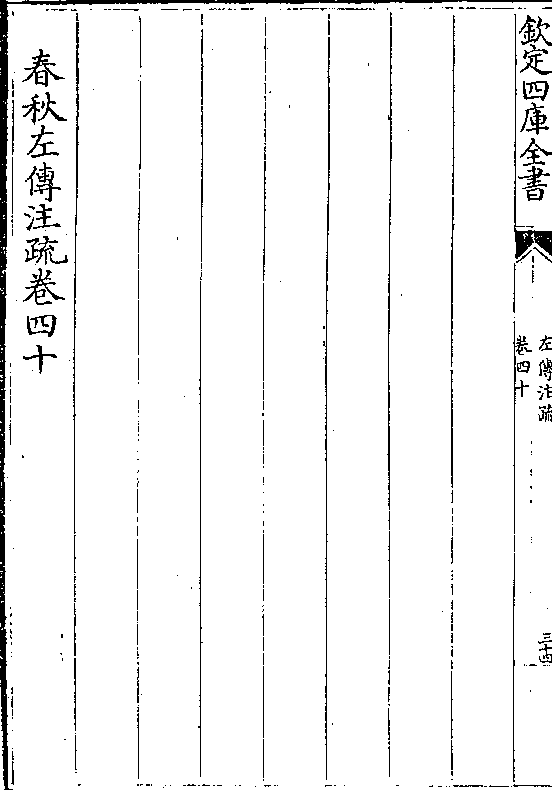 欽定四庫全書
左傳注疏
卷四十
三十四
春秋左傳注疏卷四十